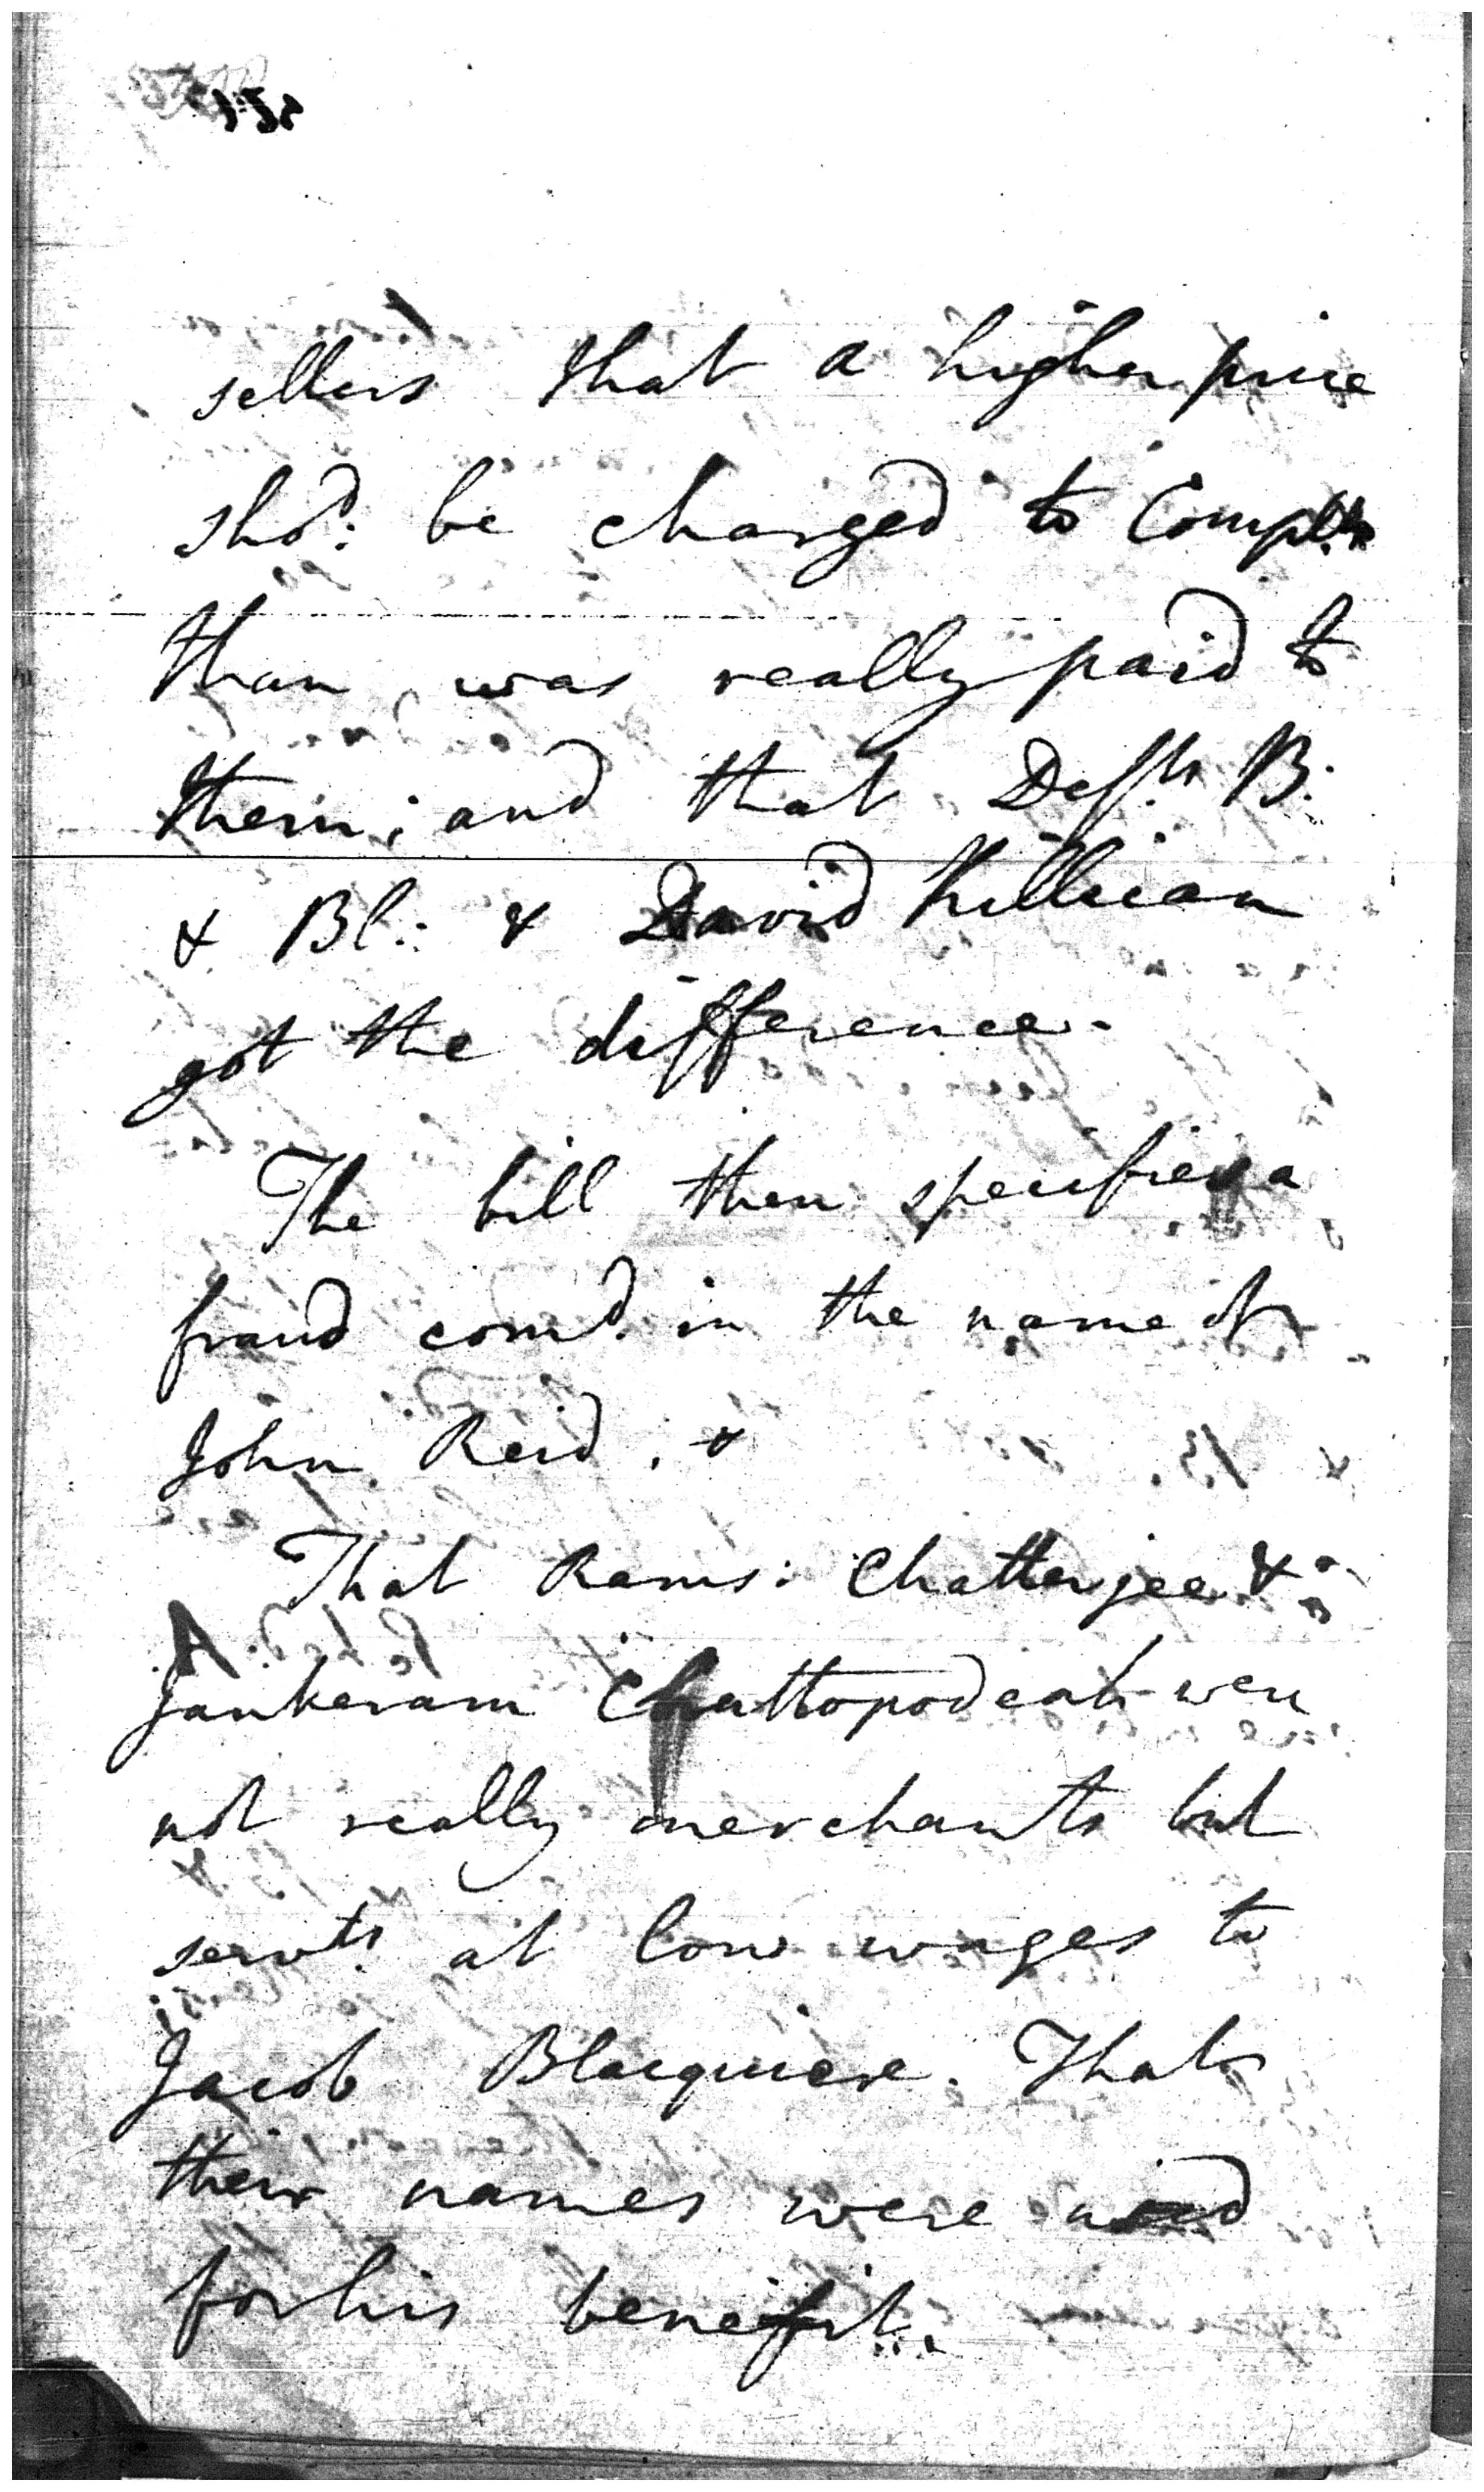 sellers that a higher price
shod: be charged to Complts
than was really paid to
them; and that Defts B:
& Bl: & David Killican
got the difference.
The bill then specifies a
fraud comd. in the name of
John Reid, &
That Rams: Chatterjee &
Jankeram Chattopodeah were
not really merchants but
servts. at low wages to
Jacob Blacquiere. That
their names were used
for his benefit.